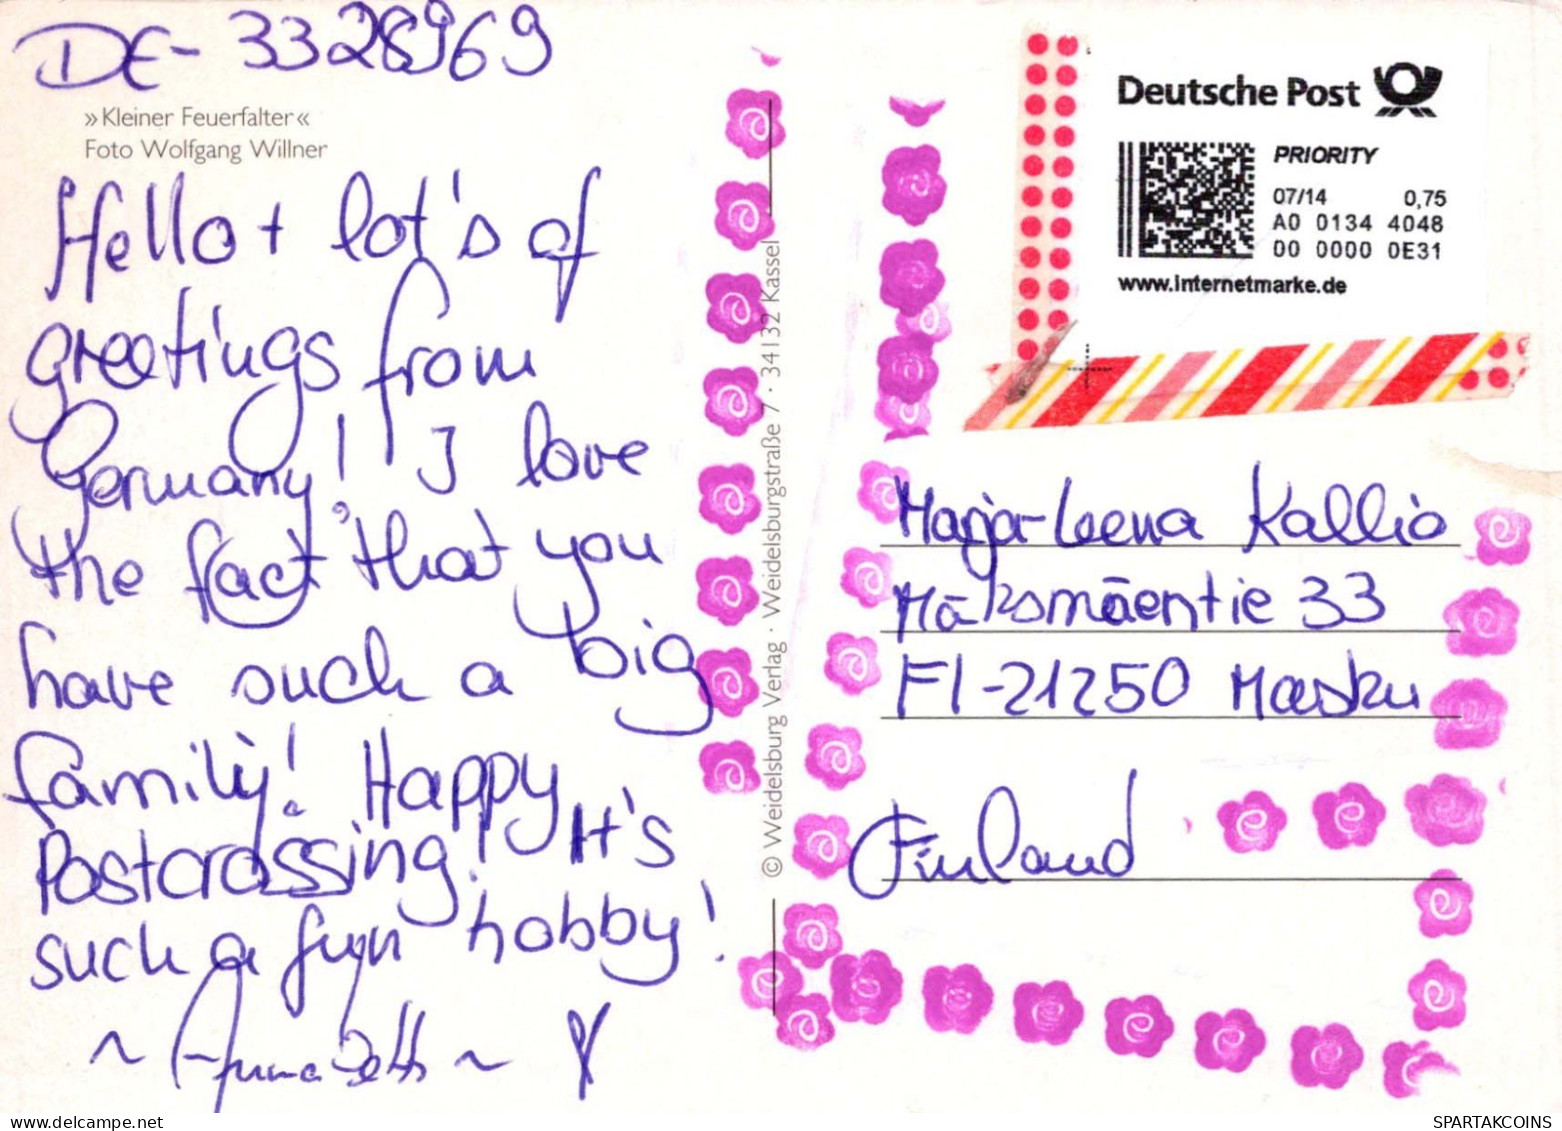 DE-3328969
»Kleiner Feuerfalter«
Foto Wolfgang Willner
Hello + lot's of
greetings from
Germany! I love
the fact that you
have such a big
family! Happy
Postcrossing! It's
such a fun hobby!
© Weidelsburg Verlag · Weidelsburgstraße 7 · 34132 Kassel
Deutsche Post
PRIORITY
07/14 0,75
A0 0134 4048
00 0000 0E31
www.internetmarke.de
Marja-Leena Kallio
Mäksmäentie 33
FI-21250 Masku
Finland
postcard-8911922.html
SPARTAKCOINS